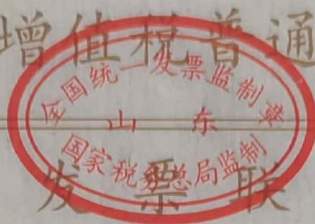 增值税普通
全国统一发票监制章
山东
国家税务总局监制
发票联